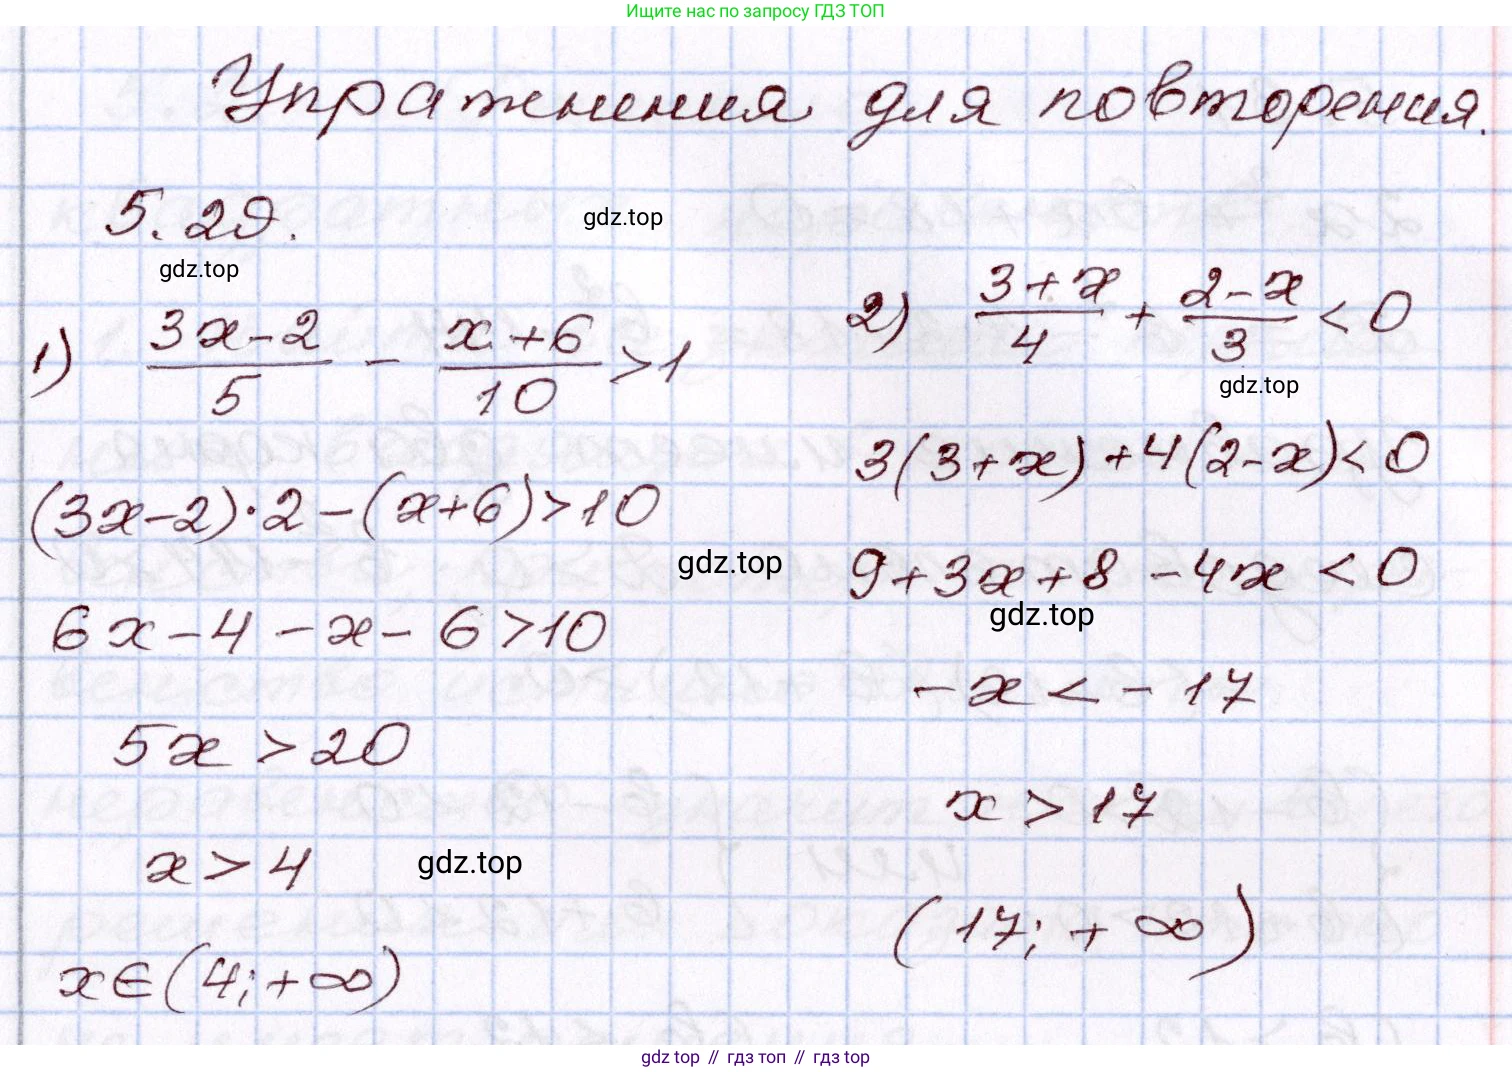 Ищите нас по запросу ГДЗ ТОП
Упражнения для повторения.
5.29.
gdz.top
gdz.top
1) (3x-2)/5 - (x+6)/10 > 1
(3x-2)·2-(x+6)>10
6x-4-x-6>10
5x>20
x>4
gdz.top
x∈(4;+∞)
2) (3+x)/4 + (2-x)/3 < 0
gdz.top
3(3+x)+4(2-x)<0
gdz.top
9+3x+8-4x<0
gdz.top
-x<-17
x>17
(17;+∞)
gdz top // гдз топ // gdz top